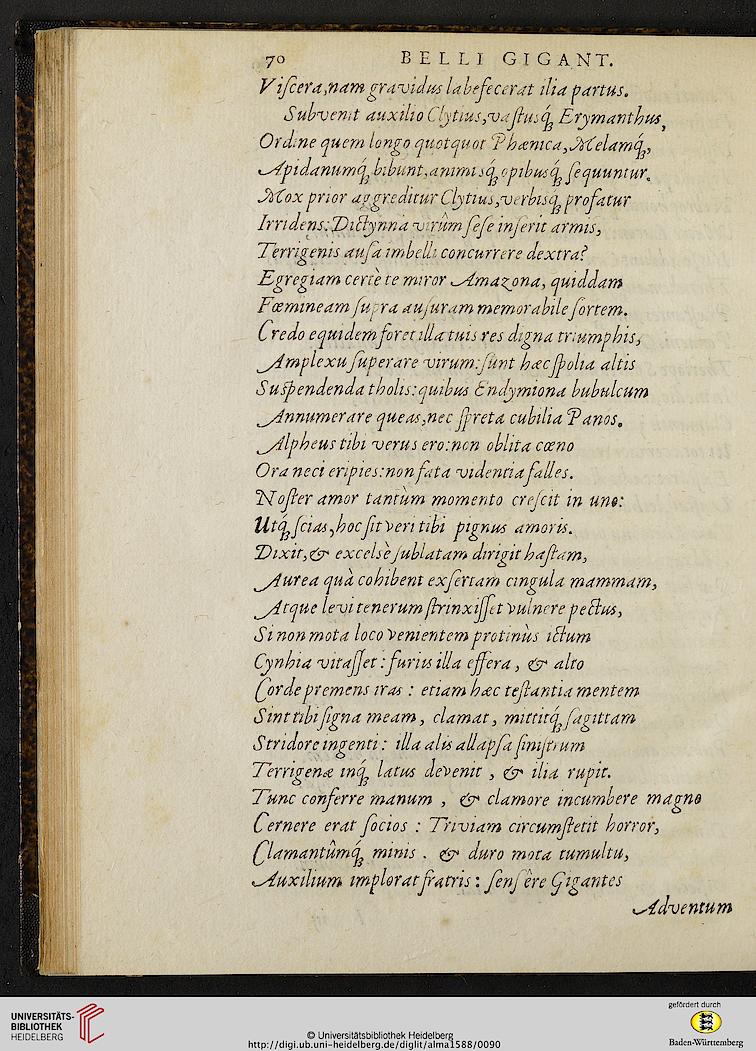 70 BELLI GIGANT.
Viſcera, nam gravidus labefecerat ilia partus.
Subvenit auxilio Clytius, vaſtusq́ꝫ Erymanthus,
Ordine quem longo quotquot Phœnica, Melamq́ꝫ,
Apidanumq́ꝫ bibunt, animisq́ꝫ opibusq́ꝫ ſequuntur.
Mox prior aggreditur Clytius, verbisq́ꝫ profatur
Irridens: Dictynna virûm ſeſe inſerit armis,
Terrigenis auſa imbelli concurrere dextra?
Egregiam certè te miror Amazona, quiddam
Fœmineam ſupra auſuram memorabile ſortem.
Credo equidem foret illa tuis res digna triumphis,
Amplexu ſuperare virum: ſunt hæc ſpolia altis
Suſpendenda tholis: quibus Endymiona bubulcum
Annumerare queas, nec ſpreta cubilia Panos.
Alpheus tibi verus ero: non oblita cœno
Ora neci eripies: non fata videntia falles.
Noſter amor tantùm momento creſcit in uno:
Utq́ꝫ ſcias, hoc ſit veri tibi pignus amoris.
Dixit, & excelsè ſublatam dirigit haſtam,
Aurea quà cohibent exſertam cingula mammam,
Atque levi tenerum ſtrinxiſſet vulnere pectus,
Si non mota loco venientem protinùs ictum
Cynhia vitaſſet: furiis illa effera, & alto
Corde premens iras: etiam hæc teſtantia mentem
Sint tibi ſigna meam, clamat, mittitq́ꝫ ſagittam
Stridore ingenti: illa alis allapſa ſiniſtrum
Terrigenæ inq́ꝫ latus devenit, & ilia rupit.
Tunc conferre manum, & clamore incumbere magno
Cernere erat ſocios: Triviam circumſtetit horror,
Clamantûmq́ꝫ minis. & duro mota tumultu,
Auxilium implorat fratris: ſenſêre Gigantes
Adventum
UNIVERSITÄTS-
BIBLIOTHEK
HEIDELBERG
© Universitätsbibliothek Heidelberg
http://digi.ub.uni-heidelberg.de/diglit/alma1588/0090
gefördert durch
Baden-Württemberg